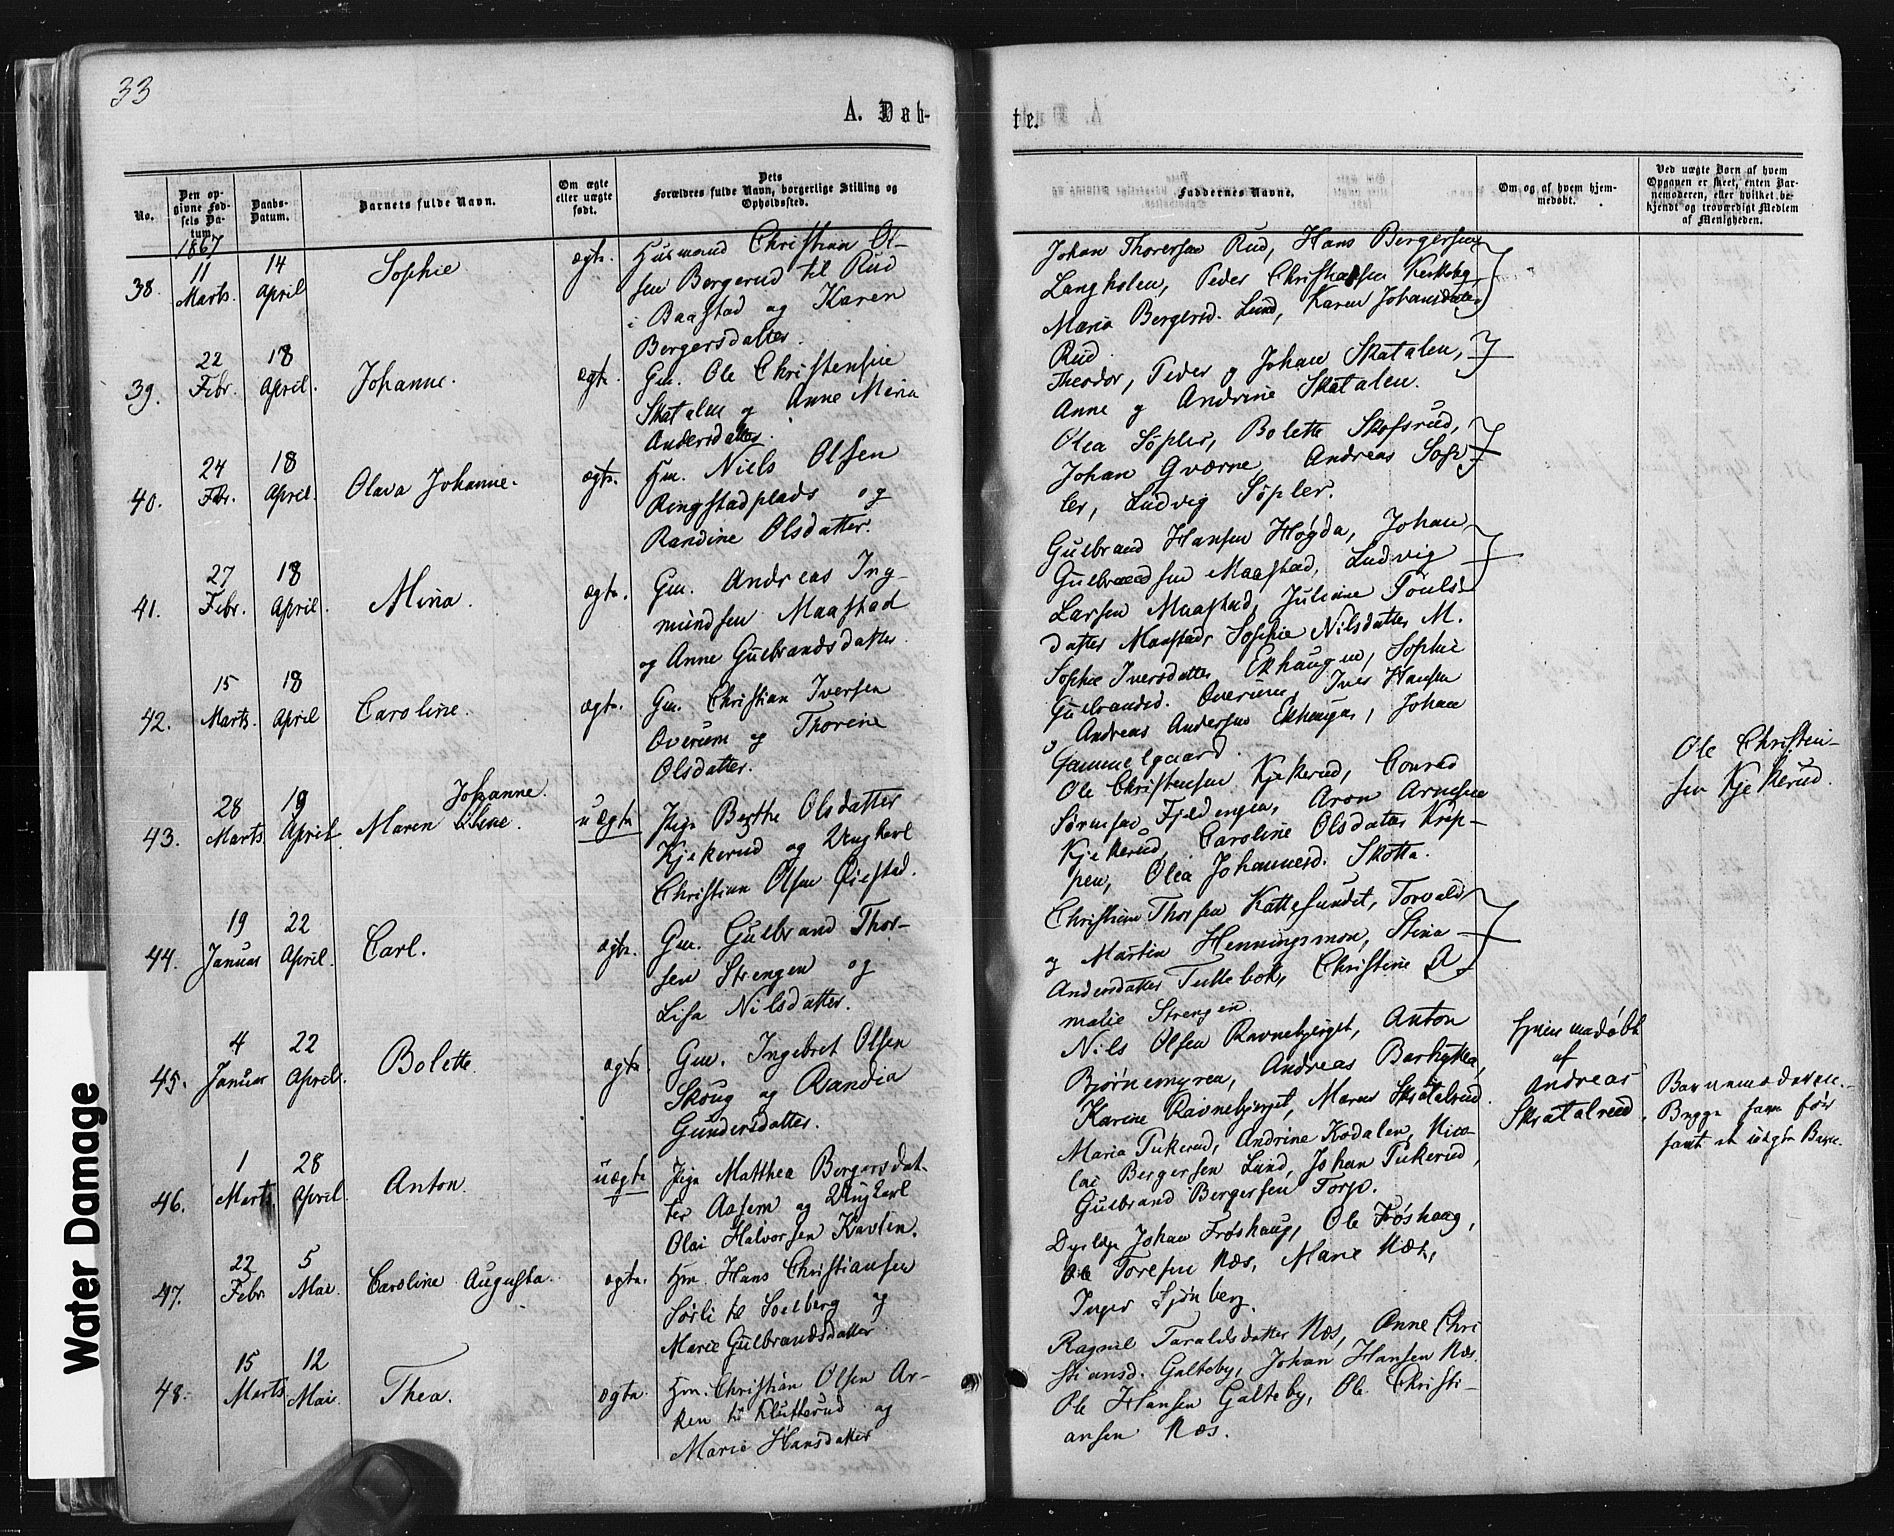 33
A. Døb-
No.
Den op-
givne Fød-
sels Da-
tum.
Daabs-
Datum.
Barnets fulde Navn.
Om ægte
eller uægte
født.
Dets
Forældres fulde Navn, borgerlige Stilling og
Opholdssted.
1867
38.
11
Marts.
14
April
Sophie
ægte.
Husmand Christian Ol-
sen Bergerud til Rud
i Baastad og Karen
Bergersdatter.
39.
22
Febr.
18
April.
Johanne.
ægte.
Gm. Ole Christensen
Skatalen og Anne Maria
Andersdatter.
40.
24
Fbr.
18
April.
Olava Johanne.
ægte.
Hm. Niels Olsen
Ringstadplads og
Randine Olsdatter.
41.
27
Febr.
18
April.
Mina.
ægte.
Gm. Andreas Ing-
mundsen Maastad
og Anne Gulbrandsdatter.
42.
15
Marts.
18
April
Caroline.
ægte.
Gm. Christian Iversen
Overum og Thorine
Olsdatter.
43.
28
Marts
19
April
Johanne.
Maren Line.
uægte
Pige Berthe Olsdatter
Kjekerud og Ungkarl
Christian Olsen Øiestad.
44.
19
Januar
22
April.
Carl.
ægte.
Gm. Gulbrand Thor-
sen Strengen og
Lisa Nilsdatter.
45.
4
Januar
22
April.
Bolette.
ægte
Gm. Ingebret Olsen
Skoug og Randia
Gundersdatter.
46.
1
Marts
28
April.
Anton.
uægte
Pige Matthea Bergersdat-
ter Aasem og Ungkarl
Olai Halvorsen Kavlin.
47.
22
Febr.
5
Mai.
Caroline Augusta.
ægte.
Hm. Hans Christiansen
Sørli til Solberg og
Marie Gulbrandsdatter
48.
15
Marts
12
Mai.
Thea.
ægte.
Hm. Christian Olsen Ar-
ken til Klutterud og
Marie Hansdatter
te.
Faddernes Navne.
Om og af hvem hjem-
medøbt.
Ved uægte Børn af hvem
Opgaven er skeet, enten Bar-
nemoderen, eller hvilket be-
kjendt og troværdigt Medlem
af Menigheden.
Johan Thoresen Rud, Hans Bergersen
Langholen, Peder Christiansen Kirkeby
Maria Bergersd. Lund, Karen Johansdatter
Rud.
Theodor, Peder og Johan Skatalen,
Anne og Andrine Skatalen.
Olea Søpler, Bolette Skofsrud,
Johan Gværne, Andreas Søp
ler, Ludvig Søpler.
Gulbrand Hansen Høgda, Johan
Gulbrandsen Maastad, Ludvig
Larsen Maastad, Juliane Pouls-
datter Maastad, Sophie Nilsdatter M.
Sophie Iversdatter Ekhaugen, Sophie
Gulbrandsd. Overum, Iver Hansen
og Andreas Andersen Ekhaugen, Johan
Gammelgaard.
Ole Christensen Kjekerud, Conrad
Sørensen Fjeldengen, Aron Arnesen
Kjekerud, Caroline Olsdatter Krep-
pen, Olea Johannesd. Skotta.
Ole Christen-
sen Kjekerud.
Christian Thorsen Kattesundet, Torvald
og Martin Henningsmon, Stina
Andersdatter Tukkebok, Christine A
malie Strengen.
Nils Olsen Ravnebjerget, Anton
Bjørnemyren, Andreas
Karine Ravnebjerget, Maren Skratalrud.
Hjemmedøbt
af
Andreas
Skratalrud.
Maria Tukerud, Andrine Kodalen, Nico-
lai Bergersen Lund, Johan Tukerud,
Gulbrand Bergersen Torp.
Barnemoderen.
Begge fam før
Dyrlæge Johan Frøshaug, Ole Frøshaug,
Ole Toresen Næs, Marie Næs,
Inger Sjønberg.
Ragnil Taraldsdatter Næs, Anne Chri
stiansd. Galteby, Johan Hansen Næs.
Ole Hansen Galteby, Ole Christi-
ansen Næs.
Water Damage